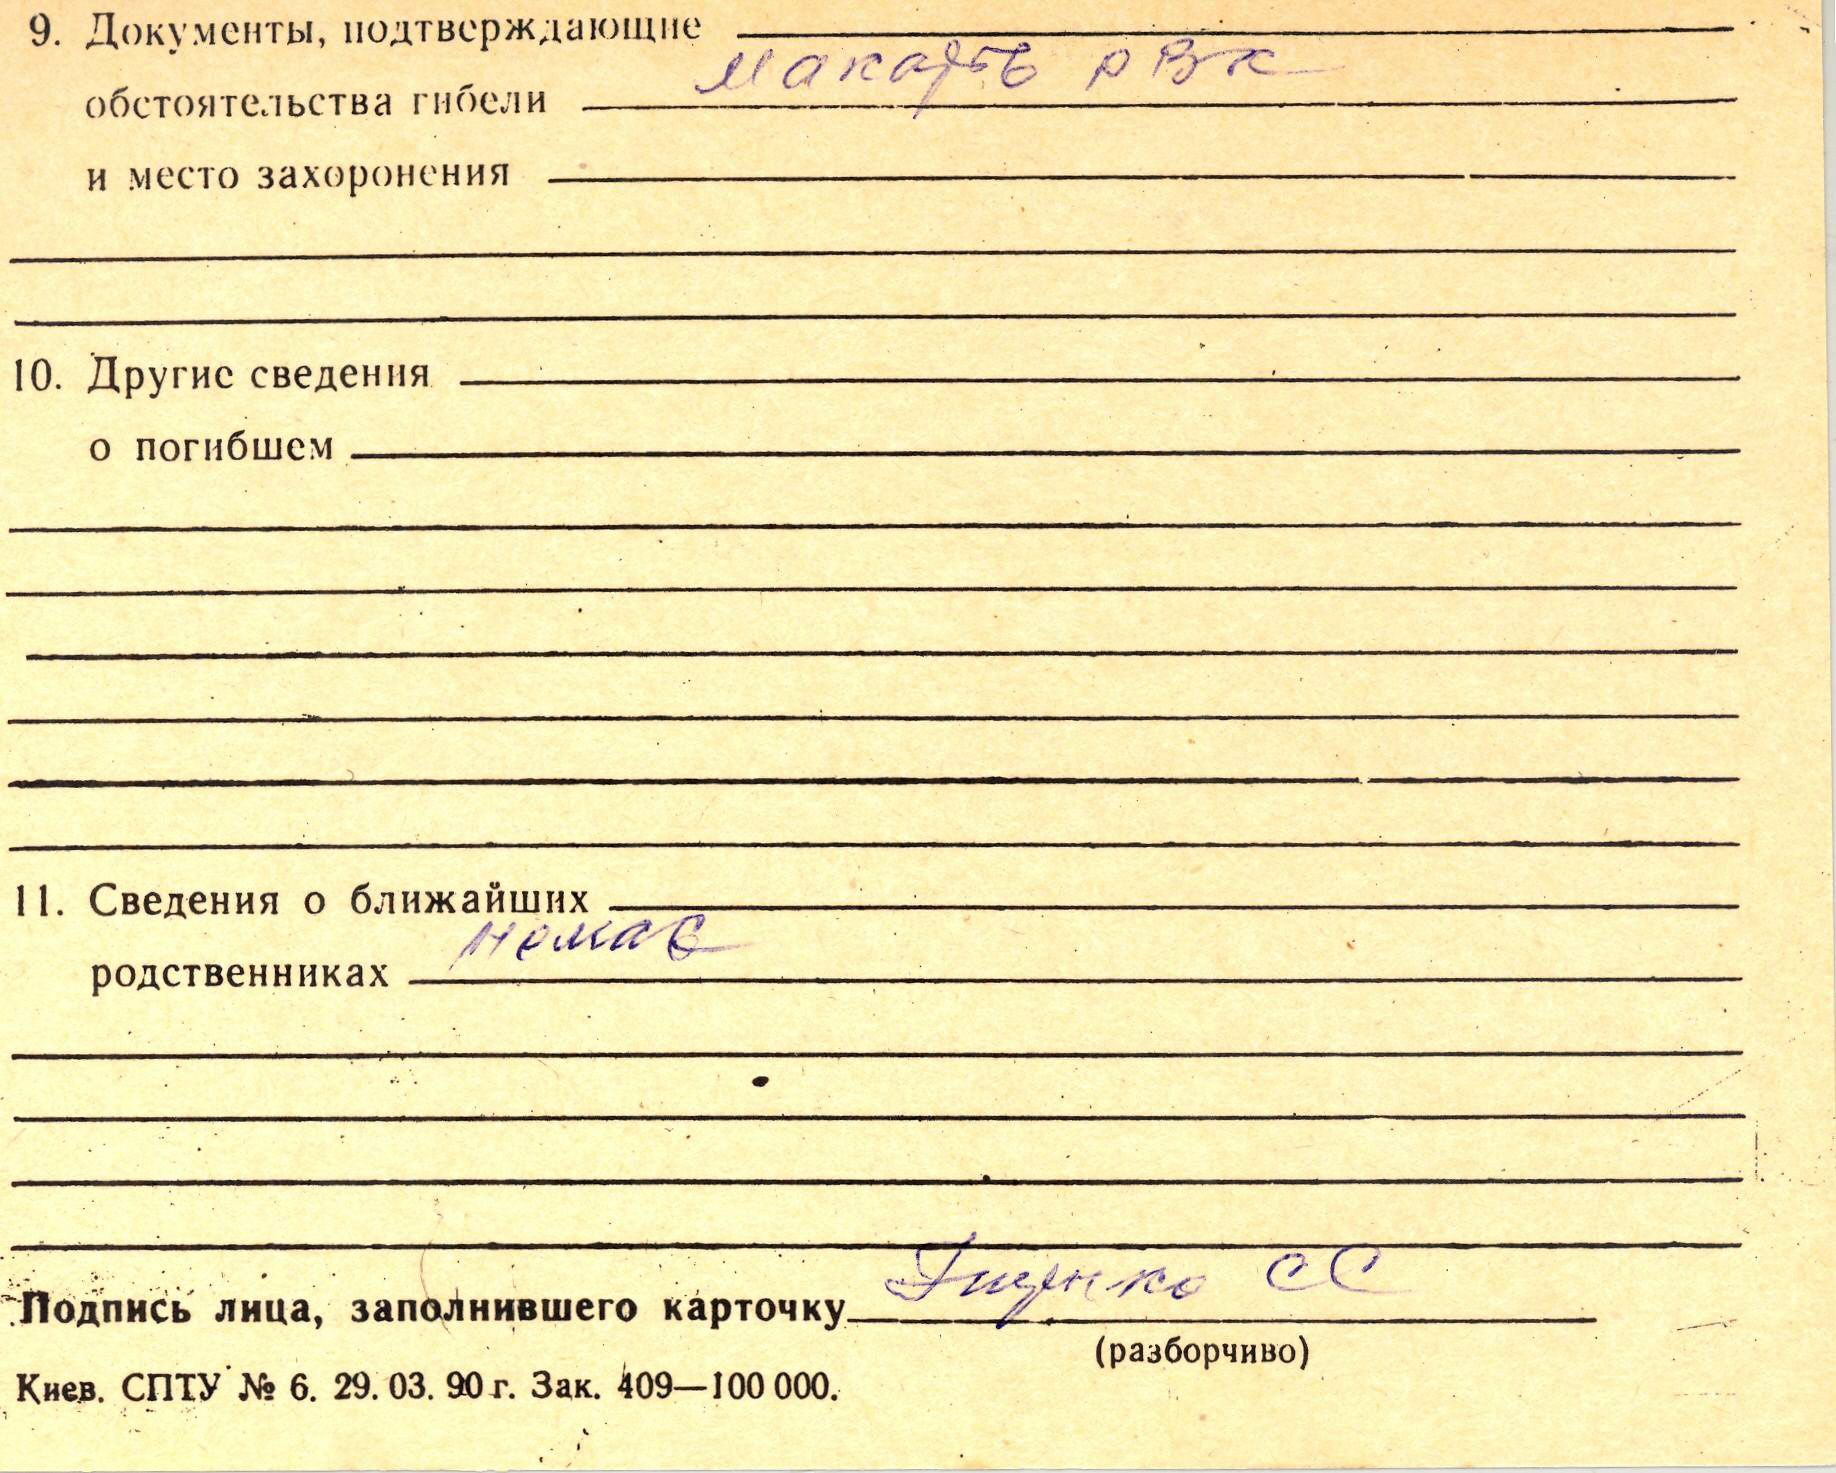 9. Документы, подтверждающие
Макарів РВК
обстоятельства гибели
и место захоронения
10. Другие сведения
о погибшем
11. Сведения о ближайших
немає
родственниках
Іщенко СС
Подпись лица, заполнившего карточку
(разборчиво)
Киев. СПТУ № 6. 29. 03. 90 г. Зак. 409—100 000.